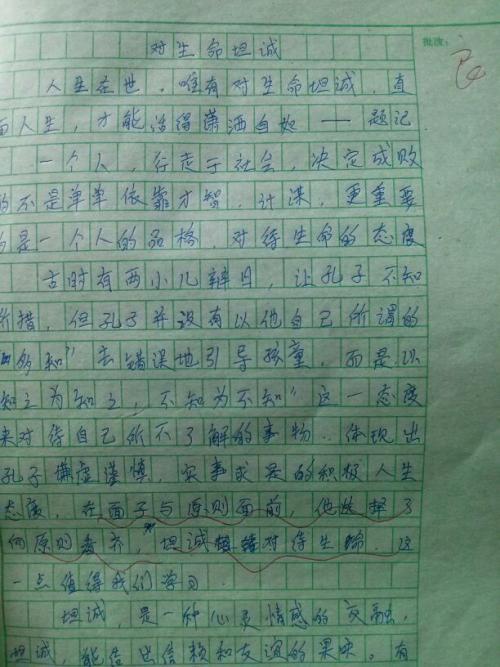 对生命坦诚
批改:
人生在世,唯有对生命坦诚,直
面人生,才能活得潇洒自如——题记
一个人,行走于社会,决定成败
的不是单单依靠才智,计谋,更重要
的是一个人的品格,对待生命的态度.
古时有两小儿辩日,让孔子不知
所措,但孔子并没有以他自己所谓的
"多知"去错误地引导孩童,而是以
知之为知之,不知为不知"这一态度
来对待自己所不了解的事物.体现出
孔子谦虚谨慎,实事求是的积极人生
态度,在面子与原则面前,他选择了
向原则看齐,坦诚对待生命.这
一点值得我们学习.
坦诚,是一种心灵情感的交融,
坦诚,能结出信赖和友谊的果实.有